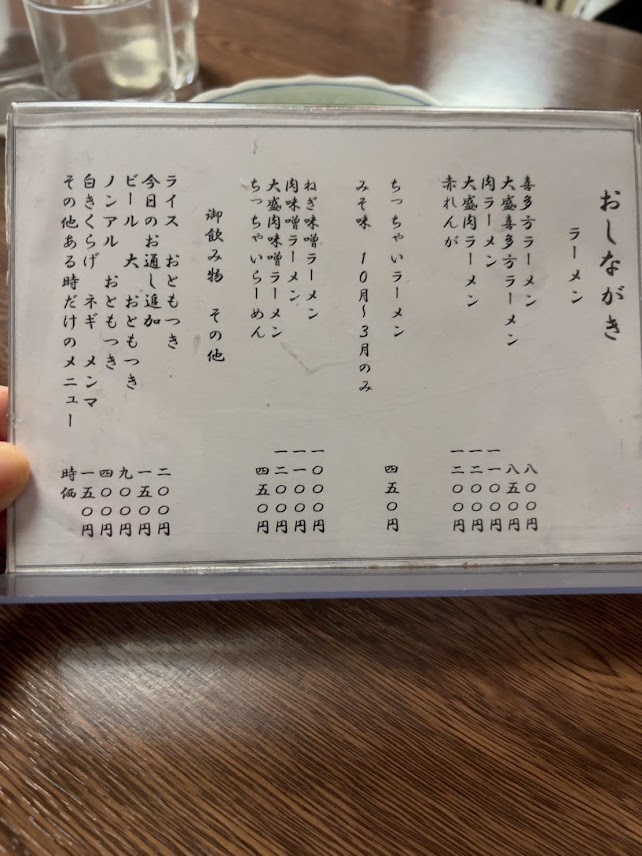 おしながき
ラーメン
喜多方ラーメン 八〇〇円
大盛喜多方ラーメン 八五〇円
肉ラーメン 一一〇〇円
大盛肉ラーメン 一二〇〇円
赤れんが 一二〇〇円
ちっちゃいラーメン 四五〇円
みそ味 10月～3月のみ
ねぎ味噌ラーメン 一〇〇〇円
肉味噌ラーメン 一一〇〇円
大盛肉味噌ラーメン 一二〇〇円
ちっちゃいらーめん 四五〇円
御飲み物 その他
ライス おともつき 二〇〇円
今日のお通し追加 一五〇円
ビール 大 おともつき 九〇〇円
ノンアル おともつき 四〇〇円
白きくらげ ネギ メンマ 一五〇円
その他ある時だけのメニュー 時価